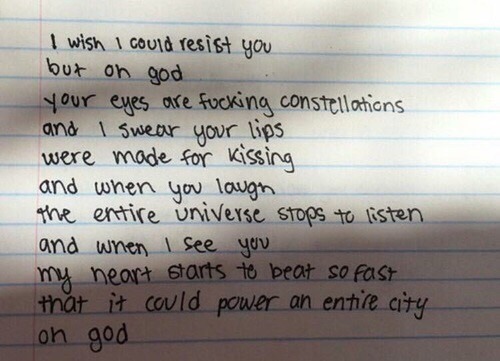 I wish I could resist you
but oh god
your eyes are fucking constellations
and I swear your lips
were made for kissing
and when you laugh
the entire universe stops to listen
and when I see you
my heart starts to beat so fast
that it could power an entire city
oh god